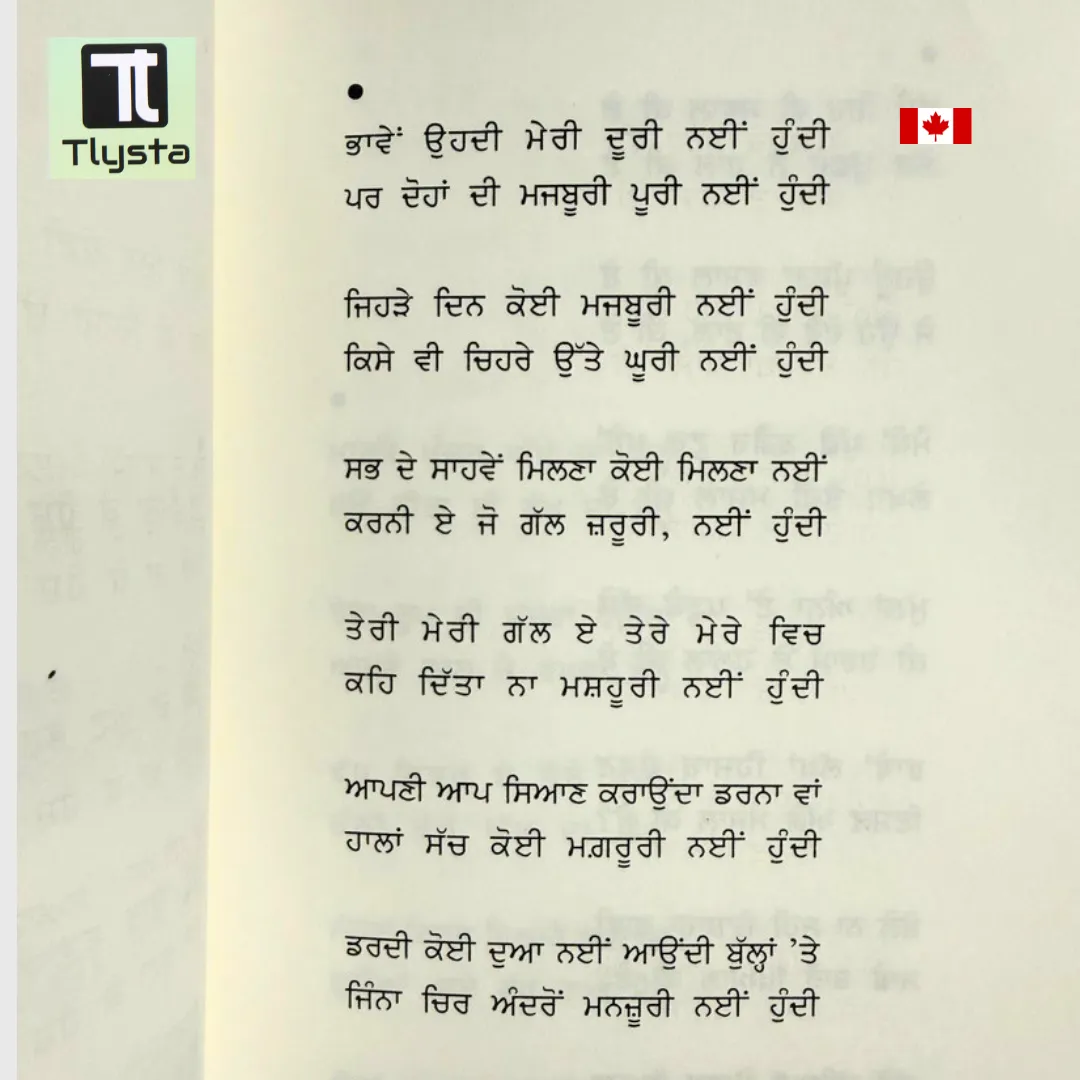 Tlysta
•
ਭਾਵੇਂ ਉਹਦੀ ਮੇਰੀ ਦੂਰੀ ਨਈਂ ਹੁੰਦੀ
ਪਰ ਦੋਹਾਂ ਦੀ ਮਜਬੂਰੀ ਪੂਰੀ ਨਈਂ ਹੁੰਦੀ
ਜਿਹੜੇ ਦਿਨ ਕੋਈ ਮਜਬੂਰੀ ਨਈਂ ਹੁੰਦੀ
ਕਿਸੇ ਵੀ ਚਿਹਰੇ ਉੱਤੇ ਘੂਰੀ ਨਈਂ ਹੁੰਦੀ
ਸਭ ਦੇ ਸਾਹਵੇਂ ਮਿਲਣਾ ਕੋਈ ਮਿਲਣਾ ਨਈਂ
ਕਰਨੀ ਏ ਜੋ ਗੱਲ ਜ਼ਰੂਰੀ, ਨਈਂ ਹੁੰਦੀ
ਤੇਰੀ ਮੇਰੀ ਗੱਲ ਏ ਤੇਰੇ ਮੇਰੇ ਵਿਚ
ਕਹਿ ਦਿੱਤਾ ਨਾ ਮਸ਼ਹੂਰੀ ਨਈਂ ਹੁੰਦੀ
ਆਪਣੀ ਆਪ ਸਿਆਣ ਕਰਾਉਂਦਾ ਡਰਨਾ ਵਾਂ
ਹਾਲਾਂ ਸੱਚ ਕੋਈ ਮਗ਼ਰੂਰੀ ਨਈਂ ਹੁੰਦੀ
ਡਰਦੀ ਕੋਈ ਦੁਆ ਨਈਂ ਆਉਂਦੀ ਬੁੱਲ੍ਹਾਂ ’ਤੇ
ਜਿੰਨਾ ਚਿਰ ਅੰਦਰੋਂ ਮਨਜ਼ੂਰੀ ਨਈਂ ਹੁੰਦੀ